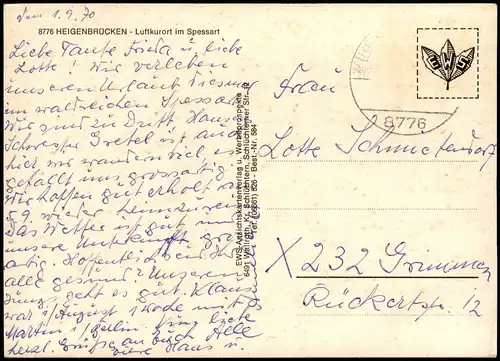 den 1.9.70
8776 HEIGENBRÜCKEN - Luftkurort im Spessart
Liebe Tante Frieda u. liebe
Lotte! Wir verleben
unseren Urlaub diesmal
im waldreichen Spessart.
Wir sind zu Dritt. Hans
Schwester Gretel ist auch
hier wir wandern viel, es
gefällt uns grossartig.
Wir hoffen gut erholt am
5.9. wieder heimzureisen
Das Wetter ist gut und
unsere Unterkunft gross-
artig. Hoffentlich seid Ihr
alle gesund? Unseren
Jungs geht es gut. Klaus
war i/August 1 Woche mit
Martin i/Berlin. Für liebe
herzl. Grüße an Euch Alle
Eure Hans u.
EWS-Ansichtskartenverlag u. Werbeprospekte
6491 Wallroth, Kr. Schlüchtern, Schlüchterner Str. 12
Tel. (06661) 626 - Best.-Nr. 584
EWS
8776
Frau
Lotte Schmetendorf
X 232 Grimmen
Rückertstr. 12